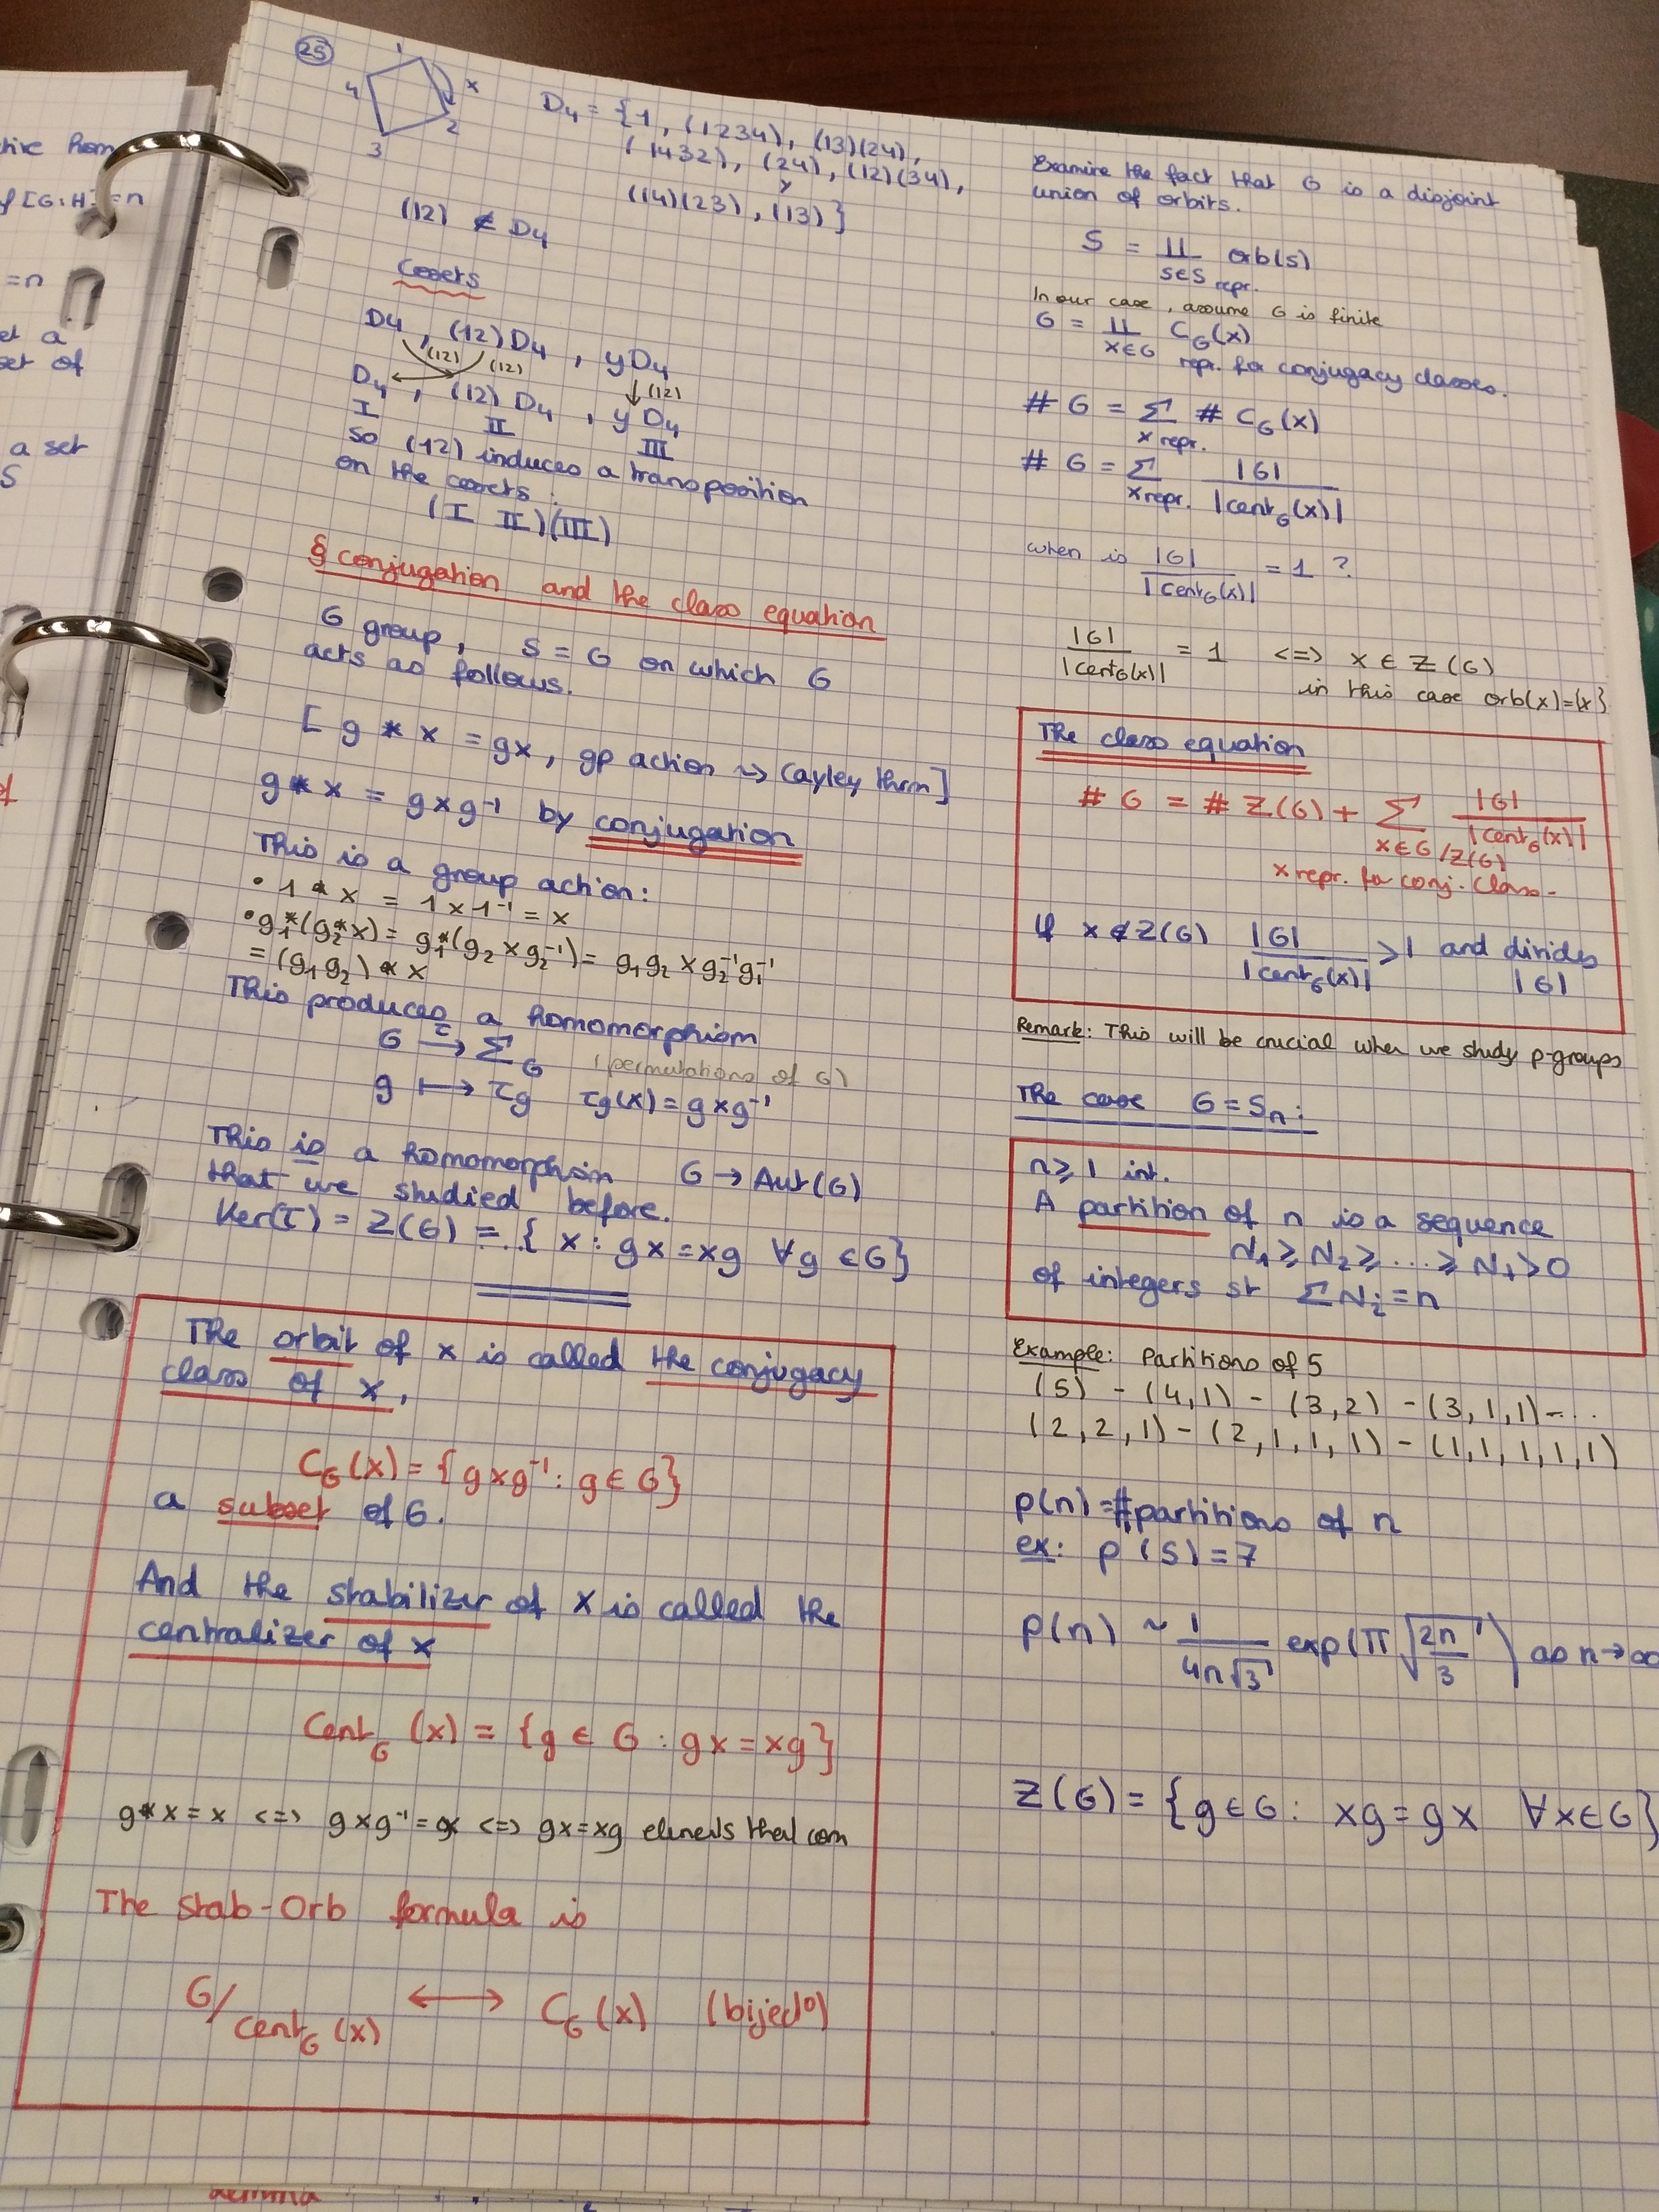 25
1
x
4
2
3
D4 = {1, (1234), (13)(24),
(1432), (24), (12)(34),
y
(14)(23), (13)}
(12) ∉ D4
Cosets
D4, (12)D4, yD4
(12) (12) ↓(12)
D4, (12)D4, yD4
I II III
so (12) induces a transposition
on the cosets:
(I II)(III)
§ conjugation and the class equation
G group, S = G on which G
acts as follows.
[g * x = gx, gp action ⇝ Cayley thm]
g * x = gxg⁻¹ by conjugation
This is a group action:
• 1 * x = 1 x 1⁻¹ = x
• g₁*(g₂*x) = g₁*(g₂ x g₂⁻¹) = g₁g₂ x g₂⁻¹g₁⁻¹
= (g₁g₂) * x
This produces a homomorphism
G →τ Σ_G (permutations of G)
g ↦ τg τg(x) = gxg⁻¹
This is a homomorphism G → Aut(G)
that we studied before.
Ker(τ) = Z(G) = {x : gx = xg ∀g ∈ G}
The orbit of x is called the conjugacy
class of x,
C_G(x) = {gxg⁻¹ : g ∈ G}
a subset of G.
And the stabilizer of x is called the
centralizer of x
Cent_G(x) = {g ∈ G : gx = xg}
g*x = x <=> gxg⁻¹ = x <=> gx = xg elements that com
The Stab-Orb formula is
G/cent_G(x) ⟷ C_G(x) (bijectº)
Examine the fact that G is a disjoint
union of orbits.
S = ∐ orb(s)
s∈S repr.
In our case, assume G is finite
G = ∐ C_G(x)
x∈G repr. for conjugacy classes.
# G = Σ # C_G(x)
x repr.
# G = Σ |G| / |cent_G(x)|
x repr.
when is |G| / |cent_G(x)| = 1 ?
|G| / |cent_G(x)| = 1 <=> x ∈ Z(G)
in this case orb(x)={x}
The class equation
# G = # Z(G) + Σ |G| / |cent_G(x)|
x∈G/Z(G)
x repr. for conj. class-
If x ∉ Z(G) |G| / |cent_G(x)| > 1 and divides
|G|
Remark: This will be crucial when we study p-groups
The case G = Sn:
n ≥ 1 int.
A partition of n is a sequence
N₁ ≥ N₂ ≥ ... ≥ N₊ > 0
of integers st ΣNᵢ = n
Example: Partitions of 5
(5) - (4,1) - (3,2) - (3,1,1) - ...
(2,2,1) - (2,1,1,1) - (1,1,1,1,1)
p(n) = #partitions of n
ex: p(5) = 7
p(n) ~ 1/(4n√3) exp(π√(2n/3)) as n→∞
Z(G) = {g∈G : xg = gx ∀x∈G}
[G:H] = n
= n
a
set of
a set
S